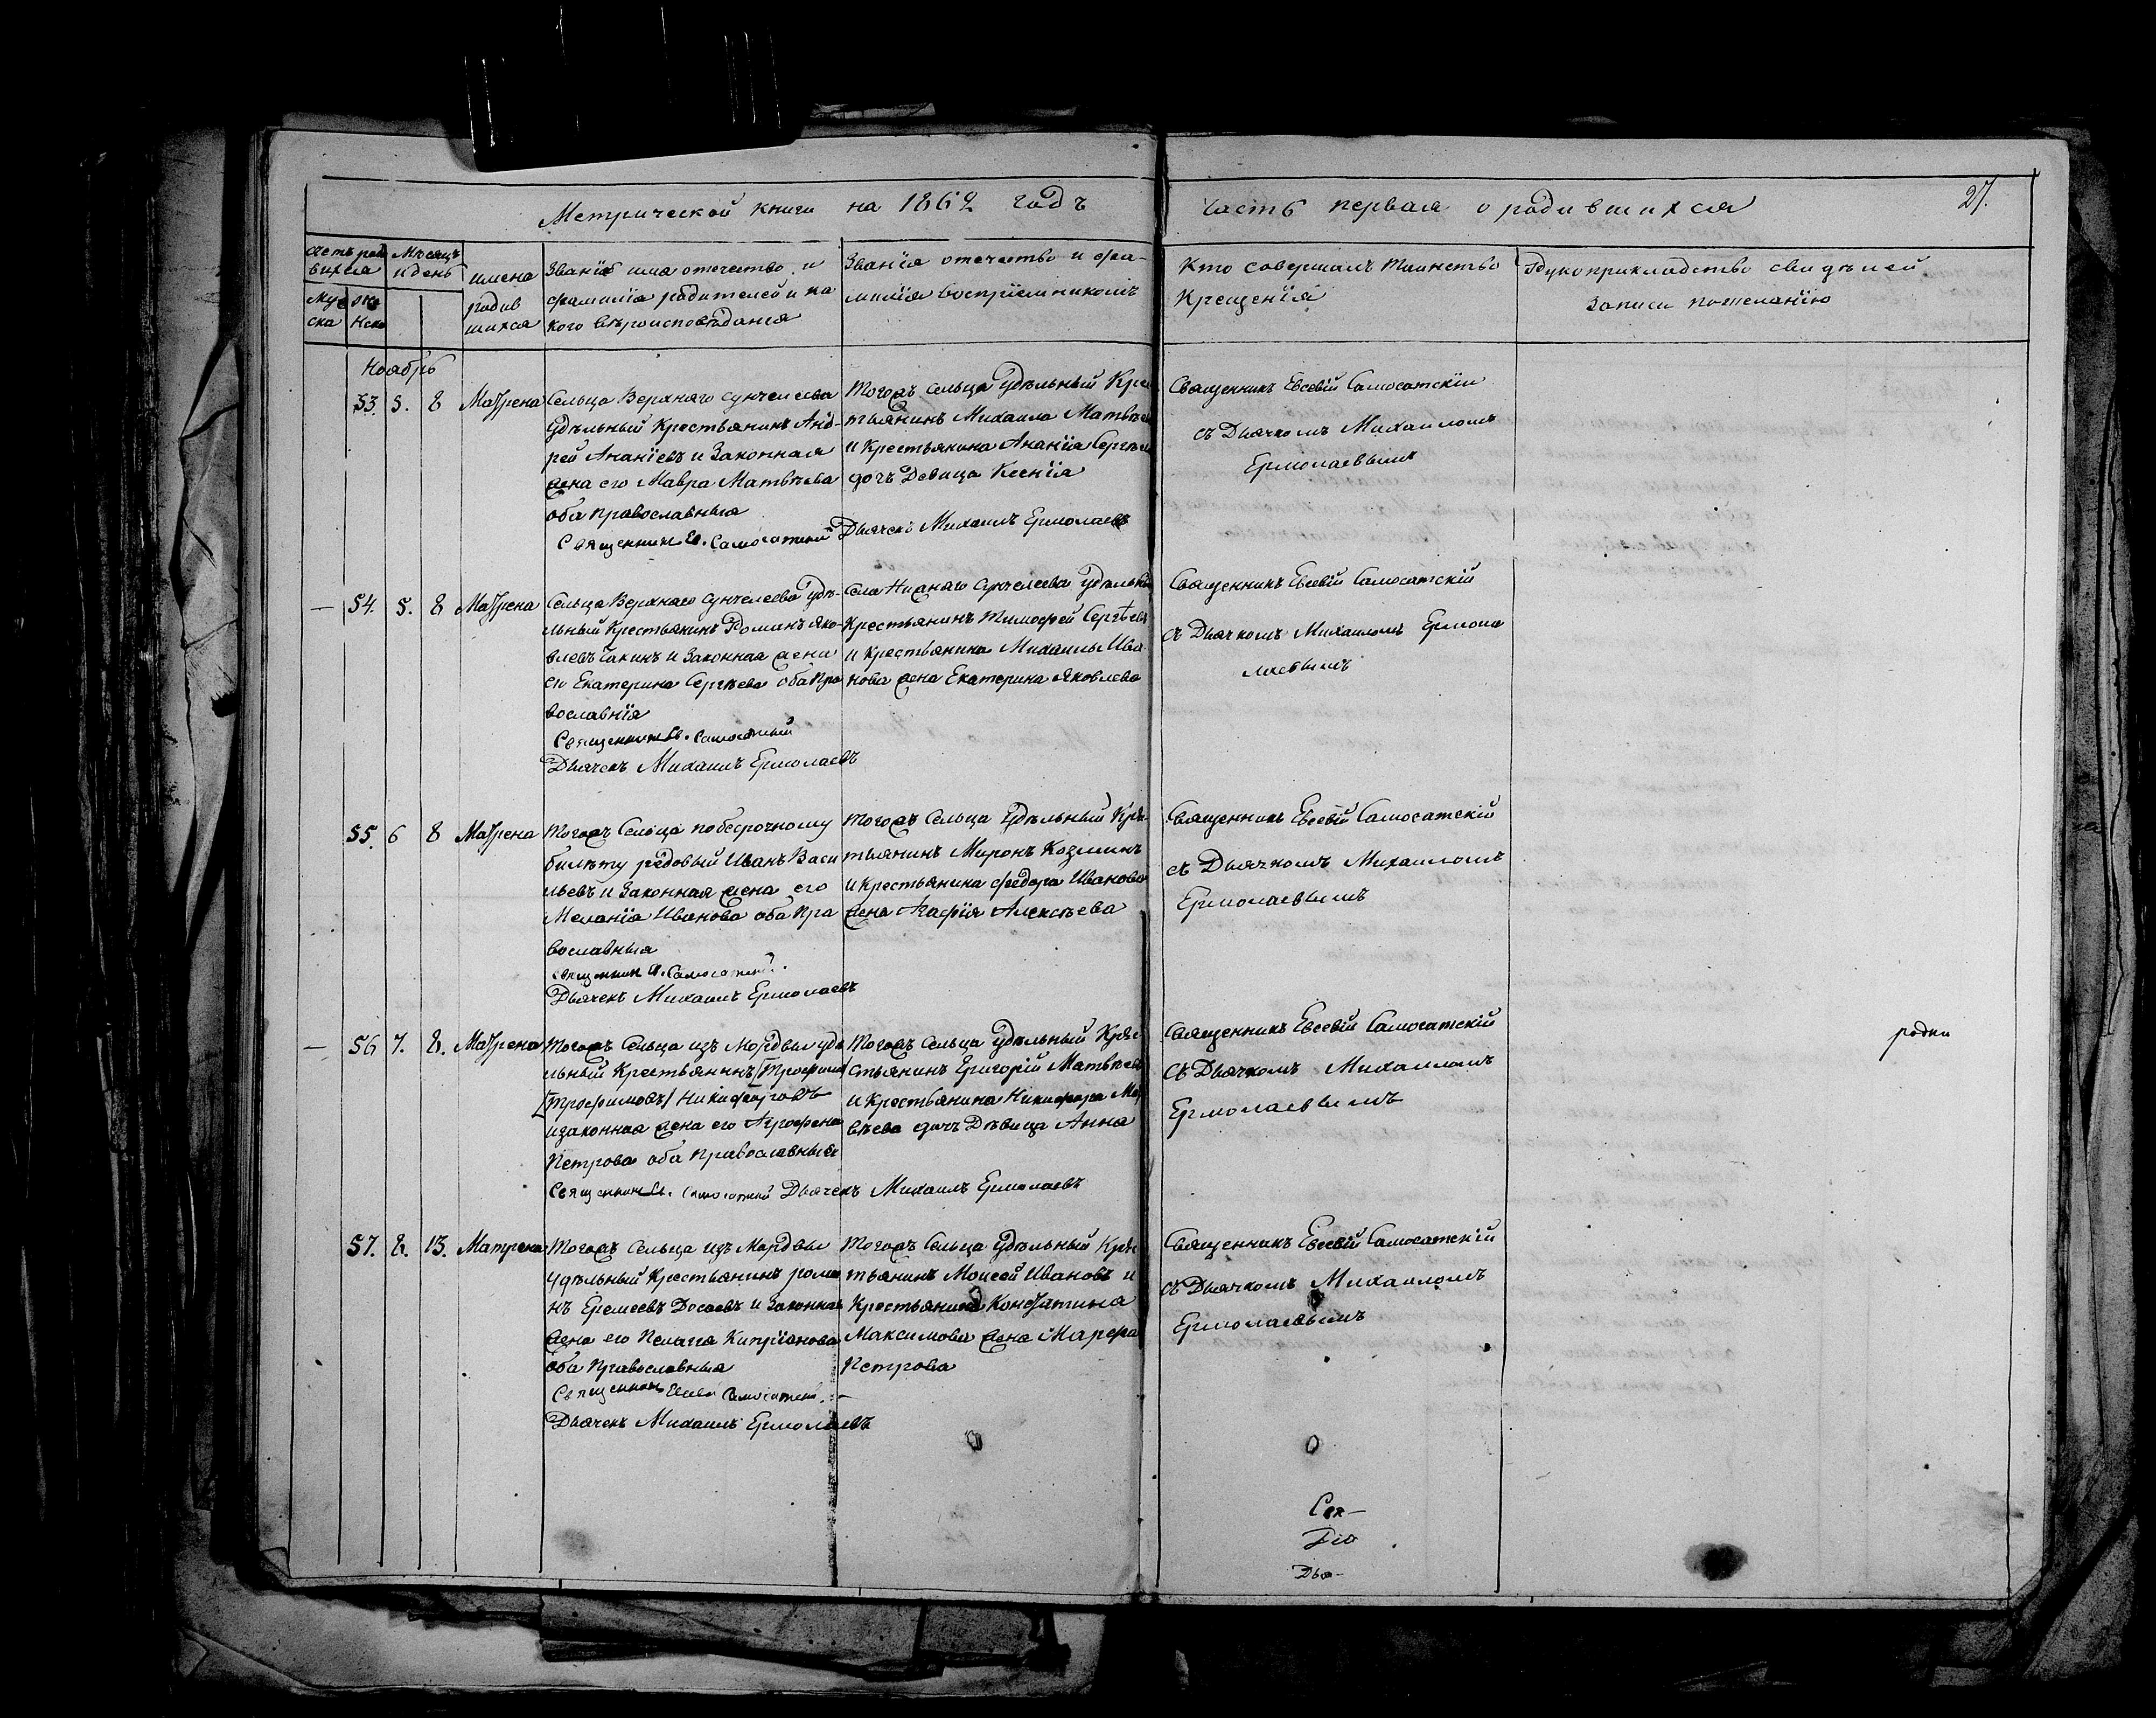 Метрической книги на 1862 годъ
Часть первая о родившихся
27.
Мѣсяцъ
и день
имена
родив
шихся
Званіе имя отечество и
фамилія родителей и ка
кого вѣроисповѣданія
Званія отечество и фа-
милія воспріемниковъ
Кто совершалъ таинство
Крещенія
Рукоприкладство свидѣтелей
записи пожеланію
Муже
ска
Женско
Ноябрь
53. 5. 8 Матрена
Сельца Верхняго Сунчелеева
Удѣльный Крестьянинъ Анд-
рей Ананіевъ и Законная
жена его Мавра Матвѣева
оба православныя
Священникъ Ев. Самосатскій
Тогожъ сельца Удѣльный Крес
тьянинъ Михаила Матвѣевъ
и Крестьянина Ананія Сергѣева
дочь Девица Ксенія
Дьячекъ Михаилъ Ермолаевъ
Священникъ Евсевій Самосатскій
съ Дьячкомъ Михаиломъ
Ермолаевымъ
— 54. 5. 8 Матрена
Сельца Верхняго Сунчелеева удѣ-
льный Крестьянинъ Романъ Яко-
влевъ Чакинъ и Законная жена
ег Екатерина Сергѣева оба пра
вославнія
Священникъ Ев. Самосатскій
Дьячекъ Михаилъ Ермолаевъ
Села Нижняго Сунчелеева удѣльный
Крестьянинъ Тимофей Сергѣевъ
и крестьянина Михаилы Ива
нова жена Екатерина Яковлева
Священникъ Евсевій Самосатскій
съ Дьячкомъ Михаиломъ Ермола
лаевымъ
55. 6 8 Матрена
Тогожъ Сельца побезсрочному
билѣту рядовый Иванъ Васи
льевъ и Законная жена его
Меланія Иванова оба пра
вославныя
священник Е. Самосатскій.
Дьячекъ Михаилъ Ермолаевъ
Тогожъ Сельца Удѣльный Крѣс
тьянинъ Миронъ Козминъ
и крестьянина Федора Иванова
жена Агафія Алексѣева
Священникъ Евсевій Самосатскій
съ Дьячкомъ Михаиломъ
Ермолаевымъ
— 56 7. 8. Матрена
Тогожъ Сельца изъ Мордвы удѣ
льный Крестьянинъ [Трофимъ
[Трофимовъ] Никифоровъ
и законная жена его Агрофена
Петрова оба православныя
Священник Ев. Самосатскій Дьячекъ Михаилъ Ермолаевъ
Тогожъ Сельца Удѣльный Крѣс
стьянинъ Григорій Матвѣевъ
и Крестьянина Никифора Мат
вѣева дочь Дѣвица Анна
Священникъ Евсевій Самосатскій
съ Дьячкомъ Михаиломъ
Ермолаевымъ
родни
57. 8. 13. Матрена
Тогожъ Сельца изъ Мордвы
Удѣльный Крестьянинъ Рома
нъ Еремеевъ Досаевъ и Законная
жена его Пелагія Кипріанова
оба православныя
Священник Евсевій Самосатскій. —
Дьячекъ Михаилъ Ермолаевъ
Тогожъ Сельца Удѣльный Крѣс
тьянинъ Моисей Ивановъ и
Крестьянина Константина
Максимова жена Марфа
Петрова
Священникъ Евсевій Самосатскій
съ Дьячкомъ Михаиломъ
Ермолаевымъ
Свя—
Дьа-